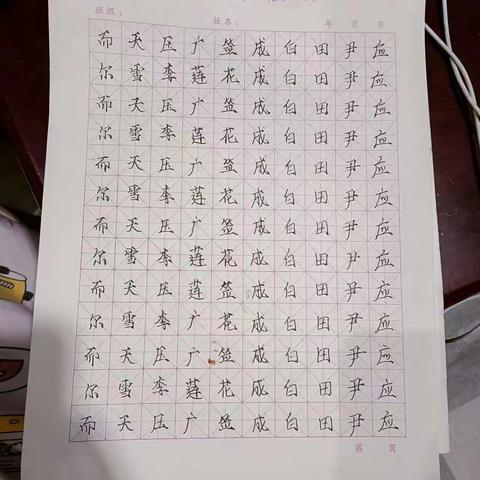 班级： 姓名： 年 月 日
而 天 压 广 签 成 白 田 尹 应
尔 雪 李 莲 花 成 白 田 尹 应
而 天 压 广 签 成 白 田 尹 应
尔 雪 李 莲 花 成 白 田 尹 应
而 天 压 广 签 成 白 田 尹 应
尔 雪 李 莲 花 成 白 田 尹 应
而 天 压 广 签 成 白 田 尹 应
尔 雪 李 莲 花 成 白 田 尹 应
而 天 压 莲 签 成 白 田 尹 应
尔 雪 李 广 花 成 白 田 尹 应
而 天 压 广 签 成 白 田 尹 应
尔 雪 李 莲 花 成 白 田 尹 应
而 天 压 广 签 成 白 田 尹 应
第 页